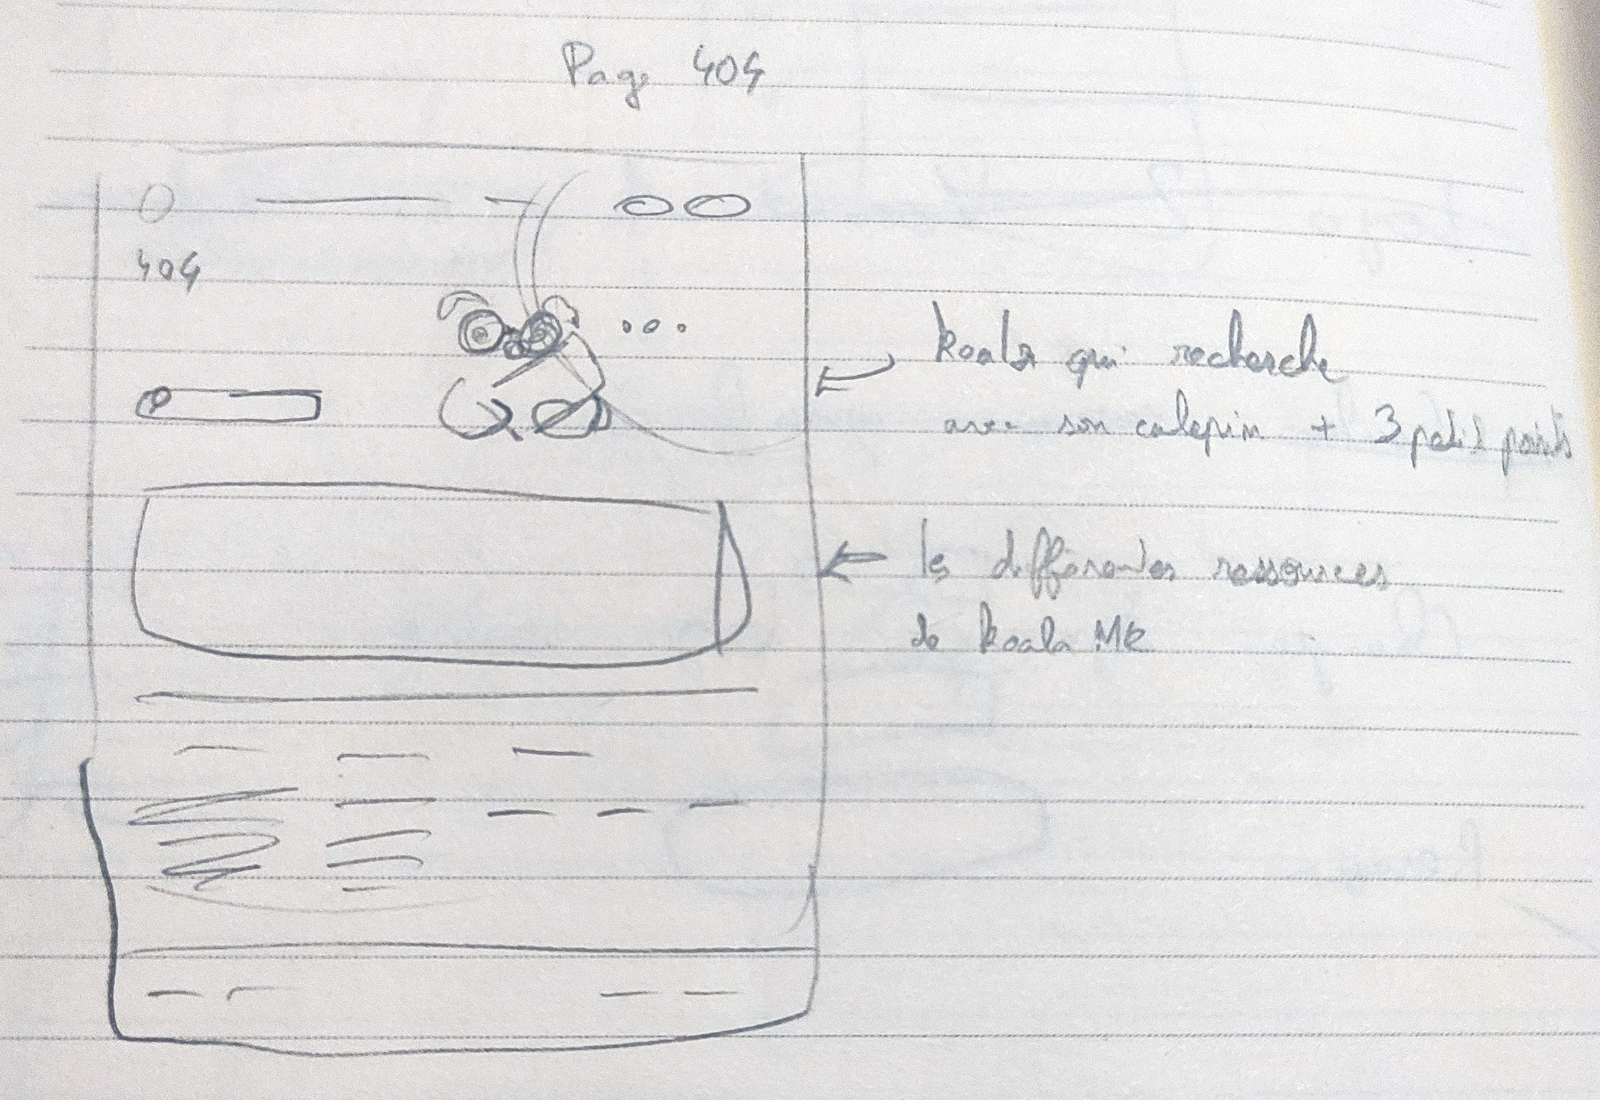 Page 404
404
koala qui recherche
avec son calepin + 3 petits points
les différentes ressources
de koala MK